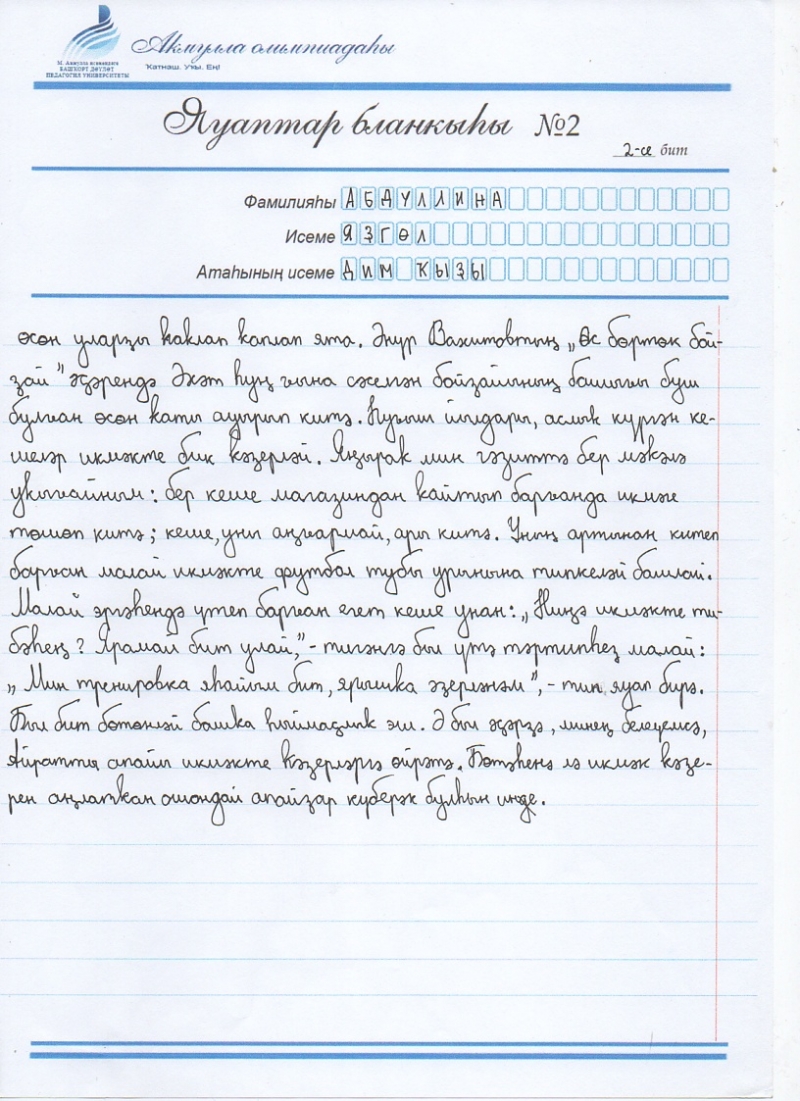 Акмулла олимпиадаһы
Ҡатнаш. Уҡы. Еңі
М. Аҡмулла исемендәге
БАШҠОРТ ДӘҮЛӘТ
ПЕДАГОГИЯ УНИВЕРСИТЕТЫ
Яуаптар бланкыһы №2
2-се бит
Фамилияһы АБДУЛЛИНА
Исеме ЯЗГӨЛ
Атаһының исеме ДИМ ҠЫҘЫ
өсөн уларҙы һаҡлап ҡаплап ята. Әнүр Вахитовтың „Өс бөртөк бой-
ҙай" әҫәрендә Әхәт һуң ғына сәселгән бойҙайының башығы буш
булған өсөн ҡаты ауырып китә. Һуғыш йылдары, аслыҡ күргән ке-
шеләр икмәкте бик ҡәҙерләй. Яңыраҡ мин гәзиттә бер мәҡәлә
уҡығайным: бер кеше магазиндан ҡайтып барғанда икмәге
төшөп китә; кеше, уны аңғармай, ары китә. Уның артынан китеп
барған малай икмәкте футбол тубы урынына типкеләй башлай.
Малай эргәһендә үтеп барған егет кеше унан: „Ниңә икмәкте ти-
бәһең? Ярамай бит улай,"- тигәнгә был үтә тәртипһеҙ малай:
„Мин тренировка яһайым бит, ярышҡа әҙерләнәм",- тип, яуап бирә.
Был бит бөтөнләй башҡа һыймаҫлыҡ эш. Ә был әҫәрҙә, минең белеүемсә,
Айратты апайы икмәкте ҡәҙерләргә өйрәтә. Бөтәһенә лә икмәк ҡәҙе-
рен аңлатҡан ошондай апайҙар күберәк булһын инде.